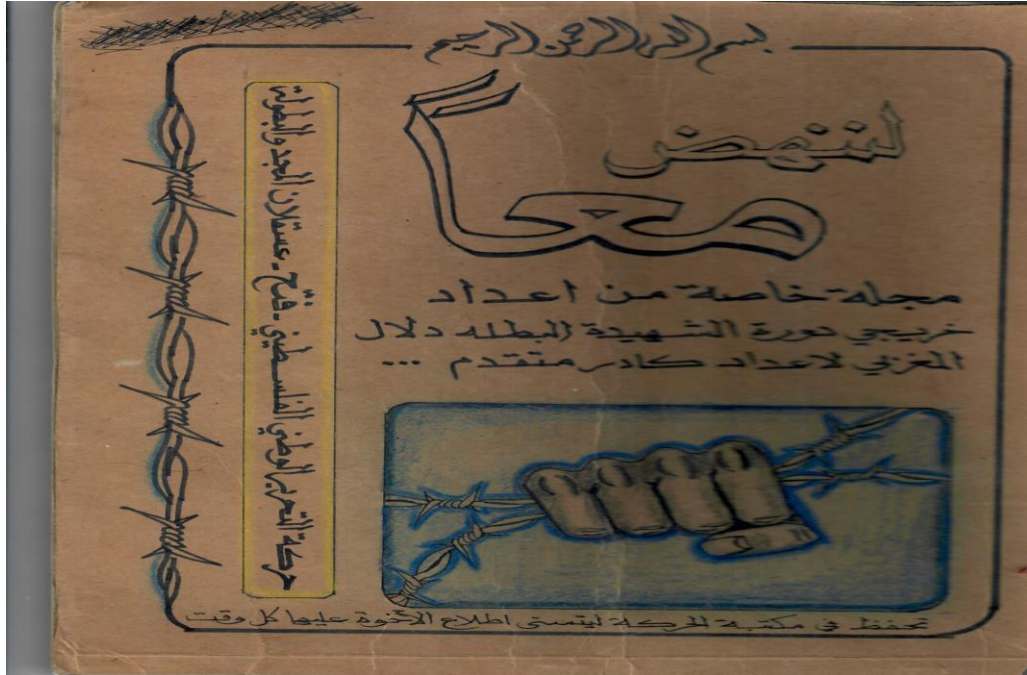 بسم الله الرحمن الرحيم
لننهض
معاً
مجلة خاصة من اعداد
خريجي دورة الشهيدة البطله دلال
المغربي لاعداد كادر متقدم ...
حركة التحرير الوطني الفلسطيني - فتح - عسقلان المجد والبطولة
تحفظ في مكتبة الحركة ليتسنى اطلاع الأخوة عليها كل وقت